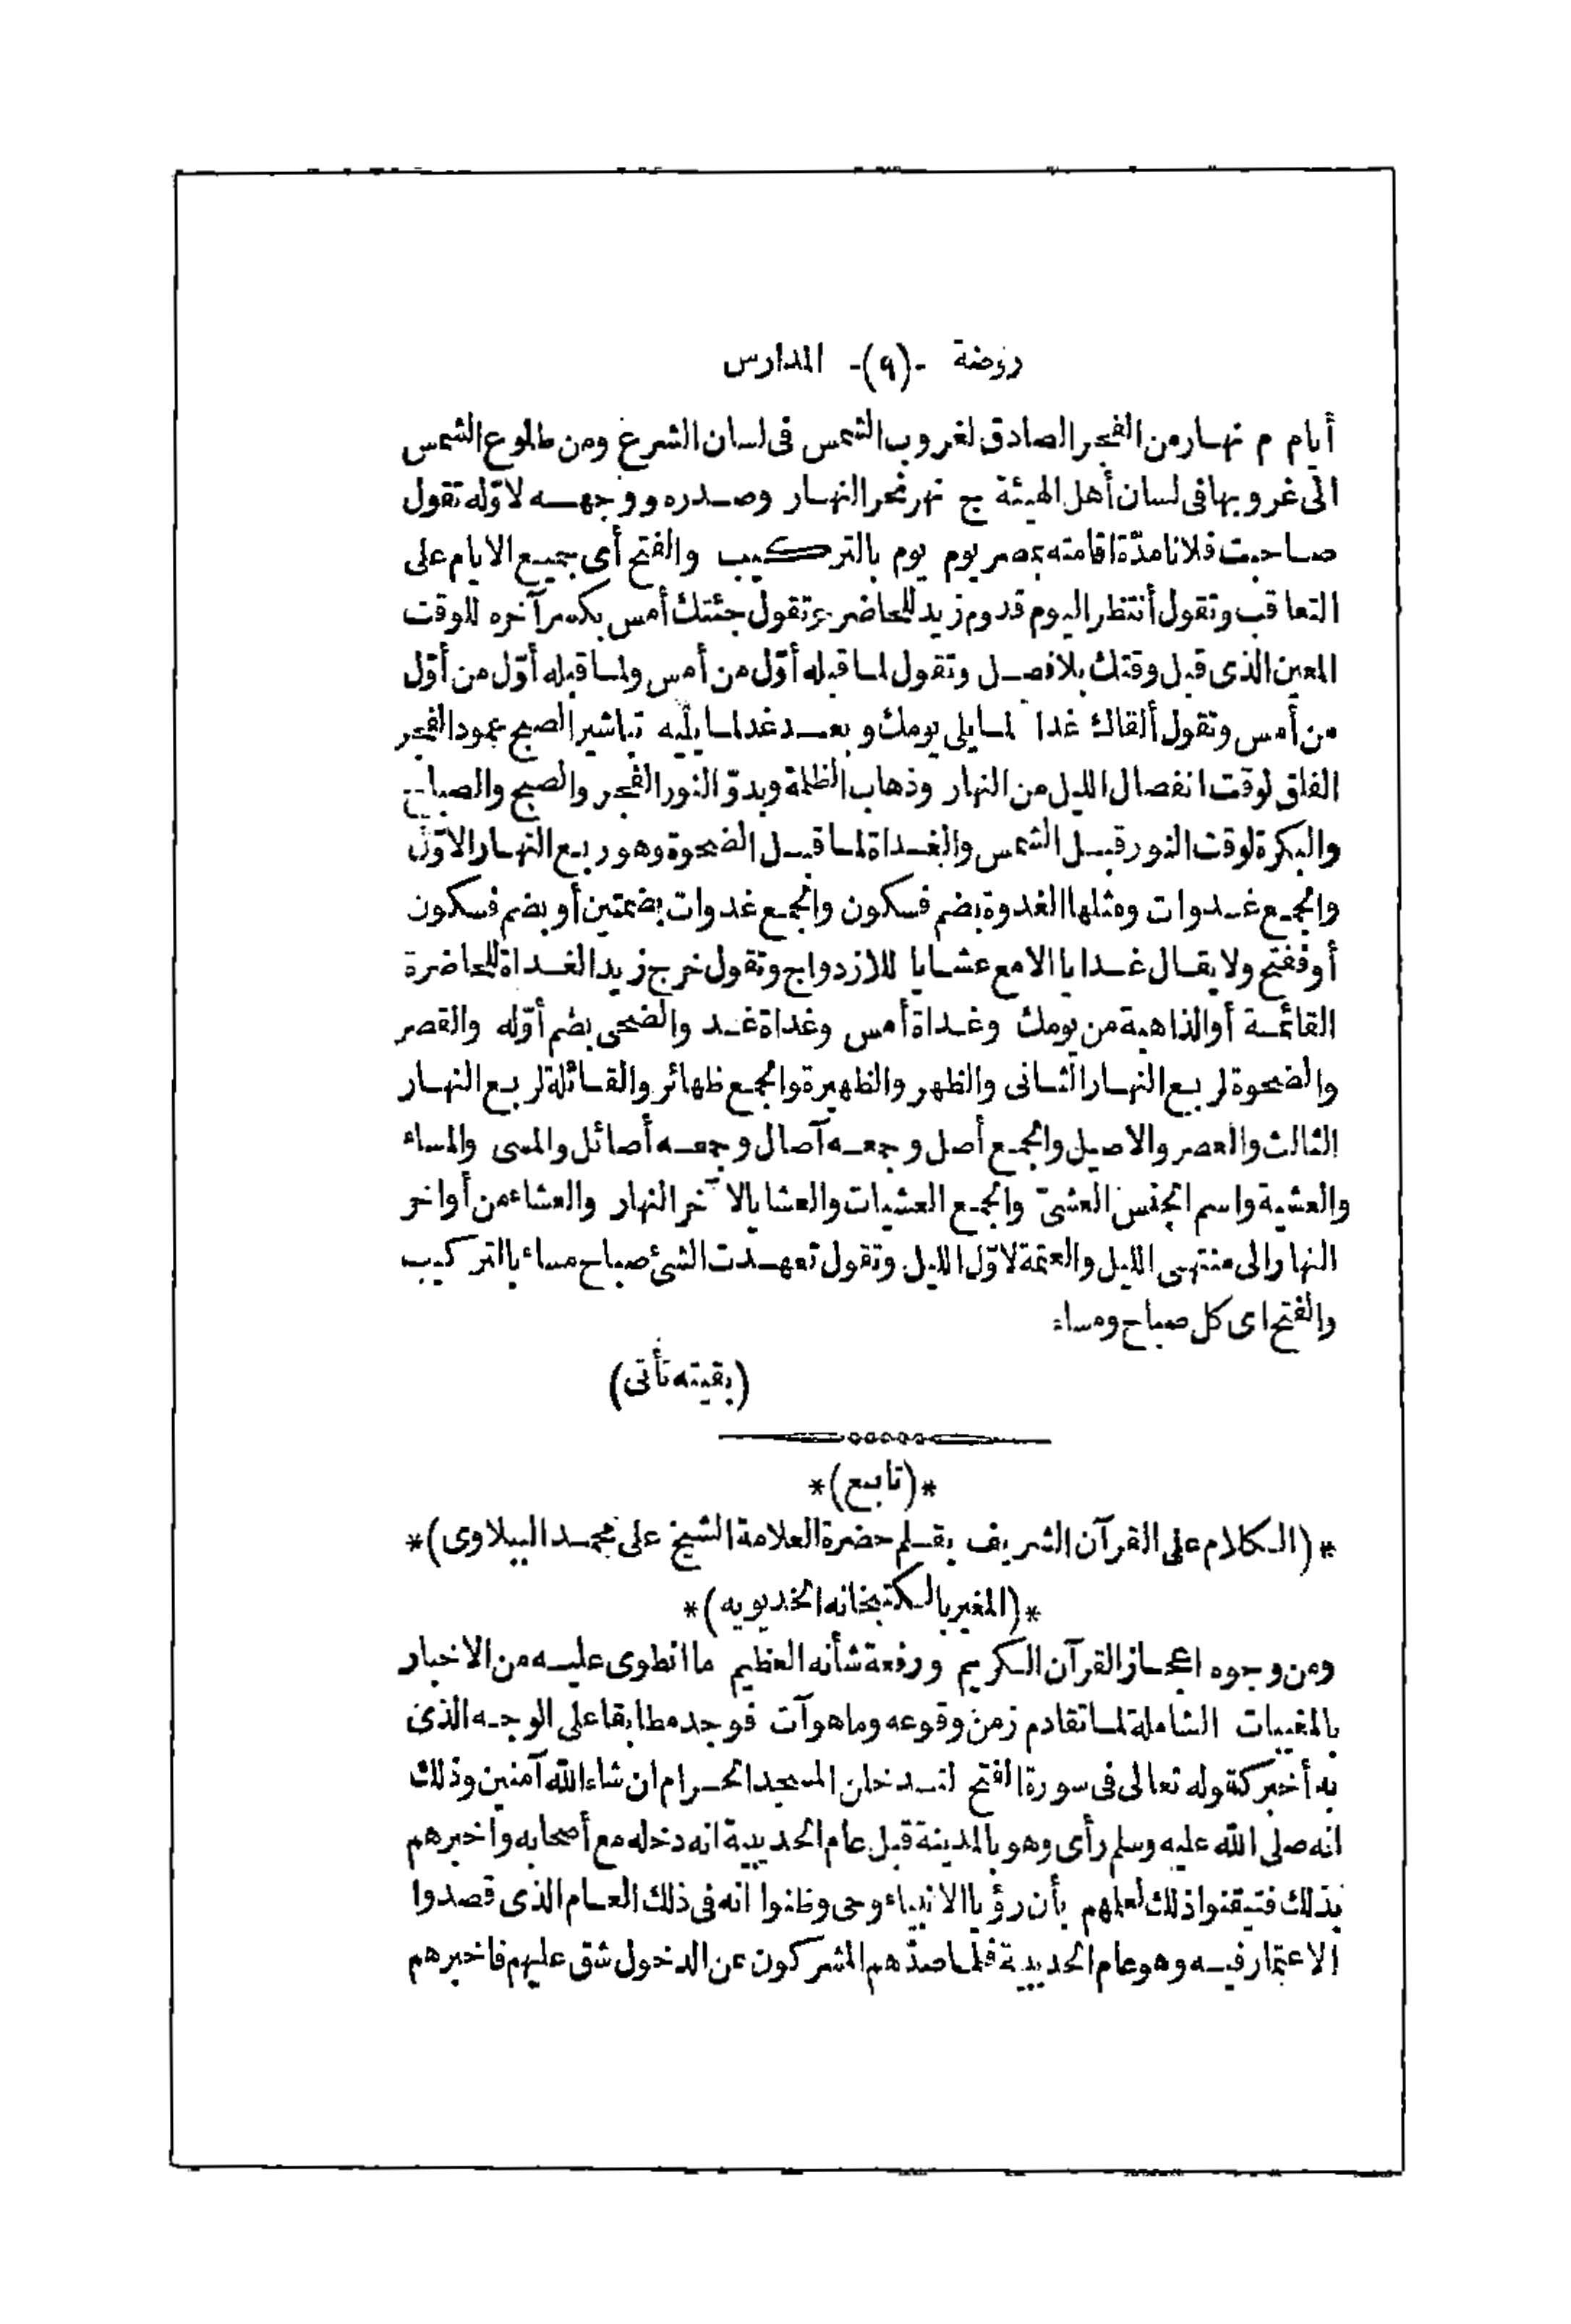 روضة -(٩)- المدارس
أيام م نهار من الفجر الصادق لغروب الشمس فى لسان الشرع ومن طلوع الشمس
الى غروبها فى لسان أهل الهيئة ج نهر نحر النهار وصدره ووجهه لاوّله تقول
صاحبت فلانا مدّة اقامته بمصر يوم يوم بالتركيب والفتح أى بجميع الايام على
التعاقب وتقول أنتظر اليوم قدوم زيد للحاضر وتقول جئتك أمس بكسر آخره للوقت
المعين الذى قبل وقتك بلا فصل وتقول لما قبله أوّل من أمس ولما قبله أوّل من أوّل
من أمس وتقول ألقاك غدا لما يلى يومك وبعد غد لما يليه تباشير الصبح عمود الفجر
الفلق لوقت انفصال الليل من النهار وذهاب الظلمة وبدوّ النور الفجر والصبح والصباح
والبكرة لوقت النور قبل الشمس والغداة لما قبل الضحوة وهو ربع النهار الاوّل
والجمع غدوات ومثلها الغدوة بضم فسكون والجمع غدوات بضمتين أو بضم فسكون
أو ففتح ولا يقال غدايا الا مع عشايا للازدواج وتقول خرج زيد الغداة للحاضرة
القائمة أو الذاهبة من يومك وغداة أمس وغداة غد والضحى بضم أوّله والقصر
والضحوة لربع النهار الثانى والظهر والظهيرة والجمع ظهائر والقائلة لربع النهار
الثالث والعصر والاصيل والجمع أصل وجمعه آصال وجمعه أصائل والمسى والمساء
والعشية واسم الجنس العشىّ والجمع العشيات والعشايا لآخر النهار والعشاء من أواخر
النهار الى منتهى الليل والعتمة لاوّل الليل وتقول تعهدت الشئ صباح مساء بالتركيب
والفتح اى كل صباح ومساء
(بقيته تأتى)
*(تابع)*
*(الكلام على القرآن الشريف بقلم حضرة العلامة الشيخ على محمد الببلاوى)*
*(المغير بالكتبخانه الخديويه)*
ومن وجوه اعجاز القرآن الكريم ورفعة شأنه العظيم ما انطوى عليه من الاخبار
بالمغيبات الشاملة لما تقادم زمن وقوعه وما هو آت فوجد مطابقا على الوجه الذى
به أخبر كقوله تعالى فى سورة الفتح لتدخلن المسجد الحرام ان شاء الله آمنين وذلك
انه صلى الله عليه وسلم رأى وهو بالمدينة قبل عام الحديبية انه دخله مع أصحابه واخبرهم
بذلك فتيقنوا ذلك لعلمهم بأن رؤيا الانبياء وحى وظنوا انه فى ذلك العام الذى قصدوا
الاعتمار فيه وهو عام الحديبية فلما صدّهم المشركون عن الدخول شق عليهم فاخبرهم